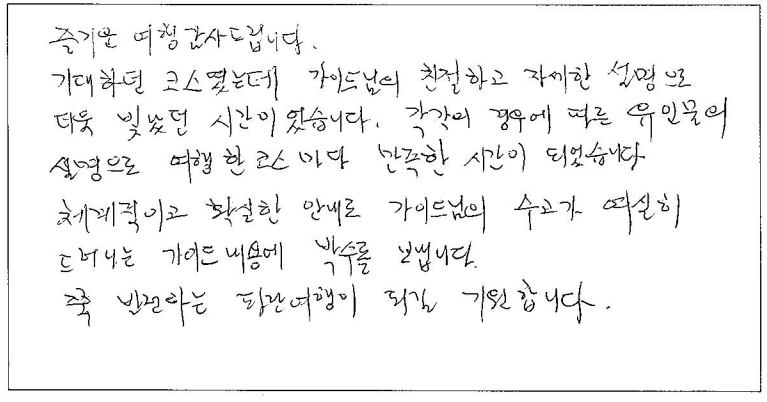 즐거운 여행 감사드립니다.
기대하던 코스였는데 가이드님의 친절하고 자세한 설명으로
더욱 빛났던 시간이었습니다. 각각의 경우에 따른 유인물의
설명으로 여행 한코스마다 만족한 시간이 되었습니다
체계적이고 확실한 안내로 가이드님의 수고가 여실히
드러나는 가이드내용에 박수를 보냅니다.
쭉 발전하는 파란여행이 되길 기원합니다.